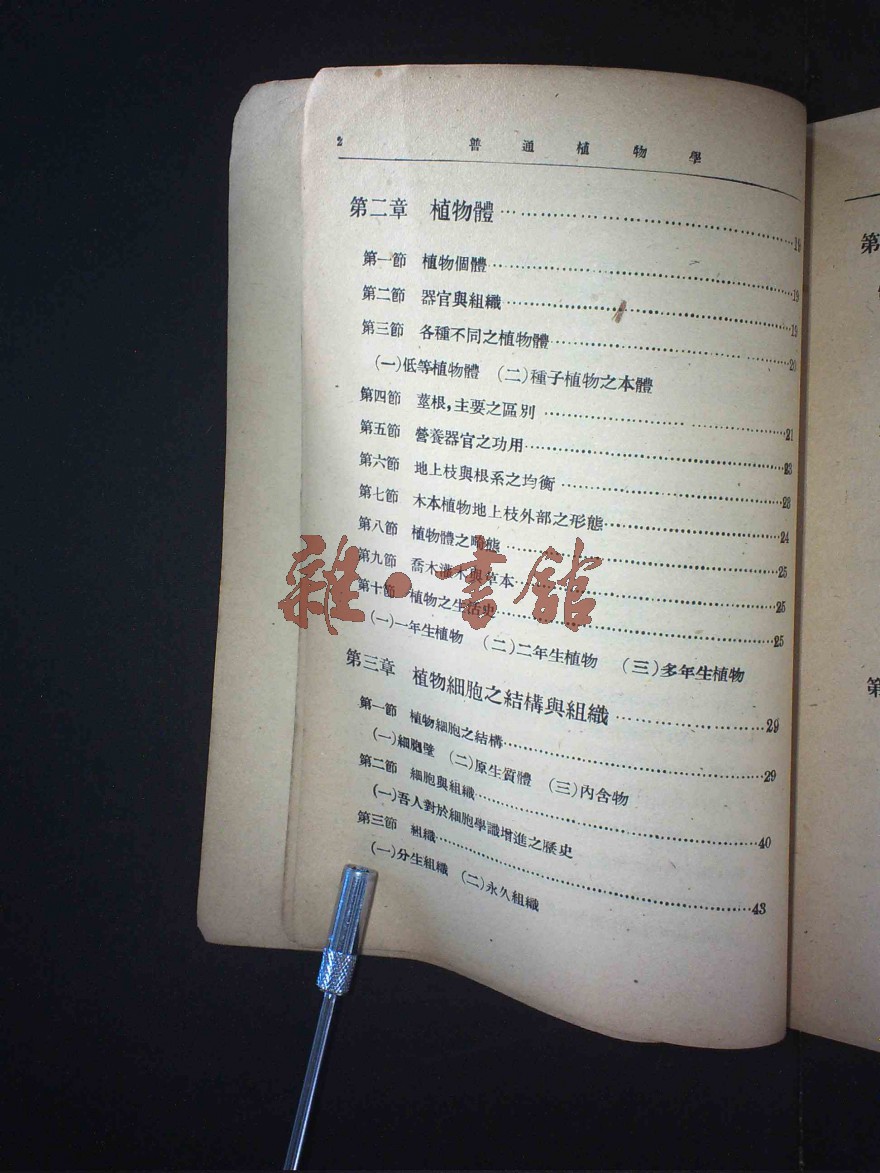 2 普通植物學
第二章 植物體……19
第一節 植物個體……19
第二節 器官與組織……19
第三節 各種不同之植物體……20
(一)低等植物體 (二)種子植物之本體
第四節 莖根，主要之區別……21
第五節 營養器官之功用……23
第六節 地上枝與根系之均衡……23
第七節 木本植物地上枝外部之形態……24
第八節 植物體之畸態……25
第九節 喬木灌木與草本……25
第十節 植物之生活史……25
(一)一年生植物 (二)二年生植物 (三)多年生植物
第三章 植物細胞之結構與組織……29
第一節 植物細胞之結構……29
(一)細胞壁 (二)原生質體 (三)內含物
第二節 細胞與組織……40
(一)吾人對於細胞學識增進之歷史
第三節 組織……43
(一)分生組織 (二)永久組織
雜·書館
第
第